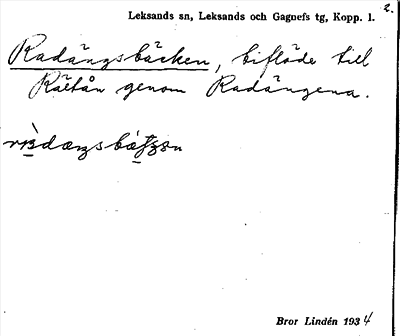 2.
Leksands sn, Leksands och Gagnefs tg, Kopp. l.
Radängsbäcken, biflöde till
Rältån genom Radängena.
Bror Lindén 1934